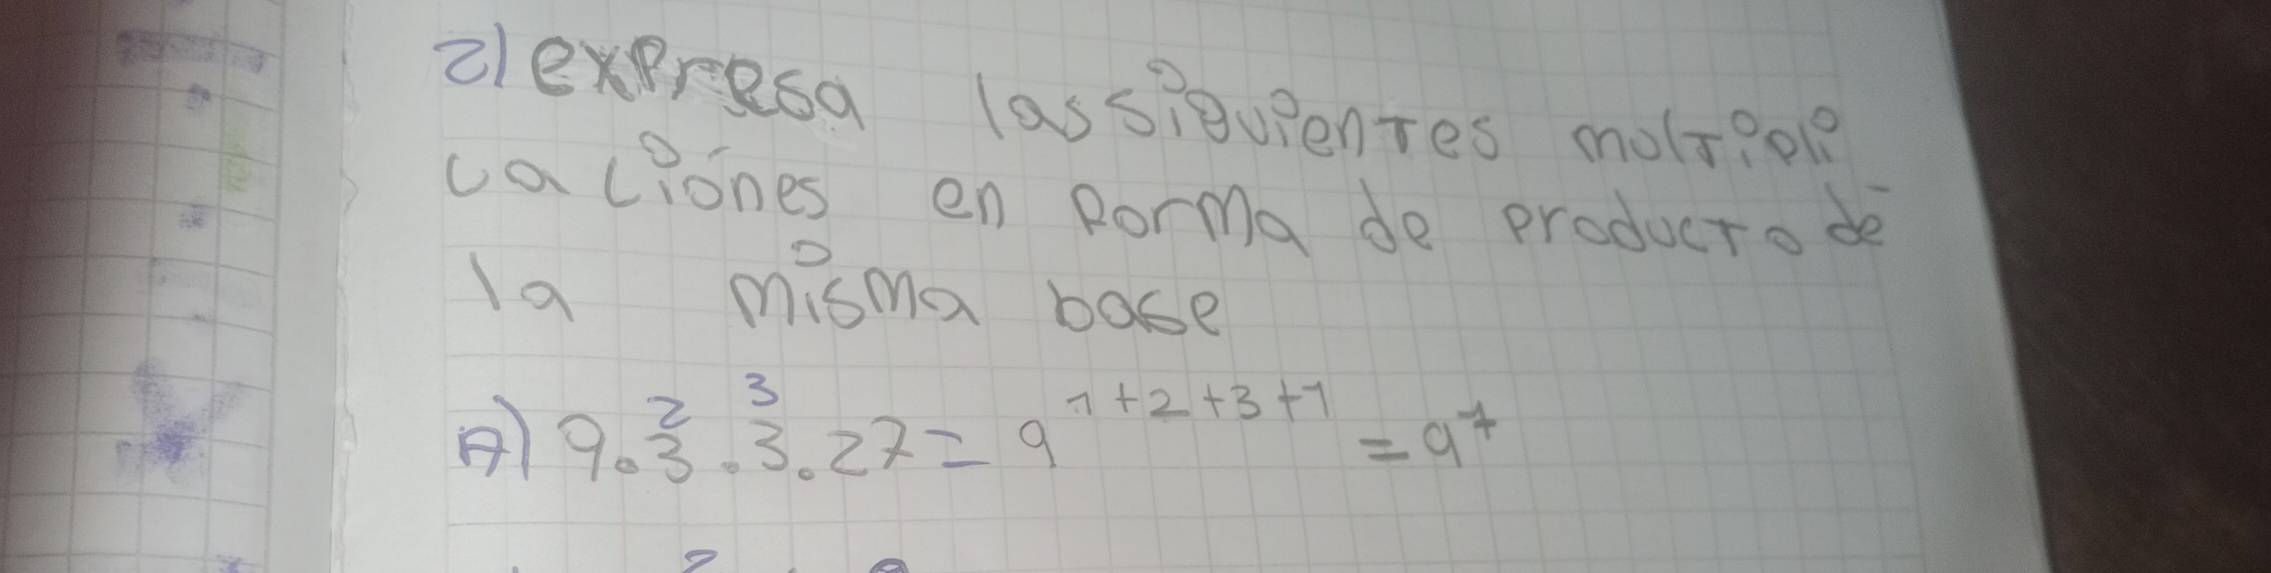 2) expresa las siguientes moltipli
caciones en forma de producto de
la misma base
A) 9.3².3³.27 = 9¹⁺²⁺³⁺¹ = 9⁷